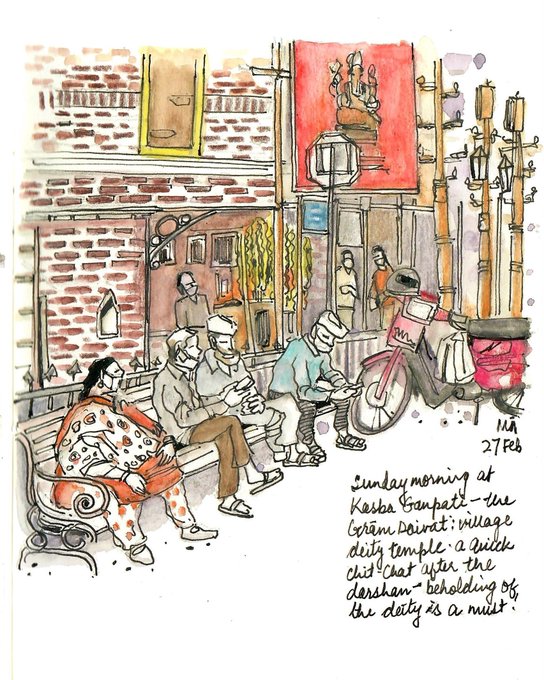 MA
27 Feb
Sunday morning at
Kasba Ganpati - the
Grām Daivat: village
deity temple. a quick
chit chat after the
darshan - beholding of
the deity is a must!